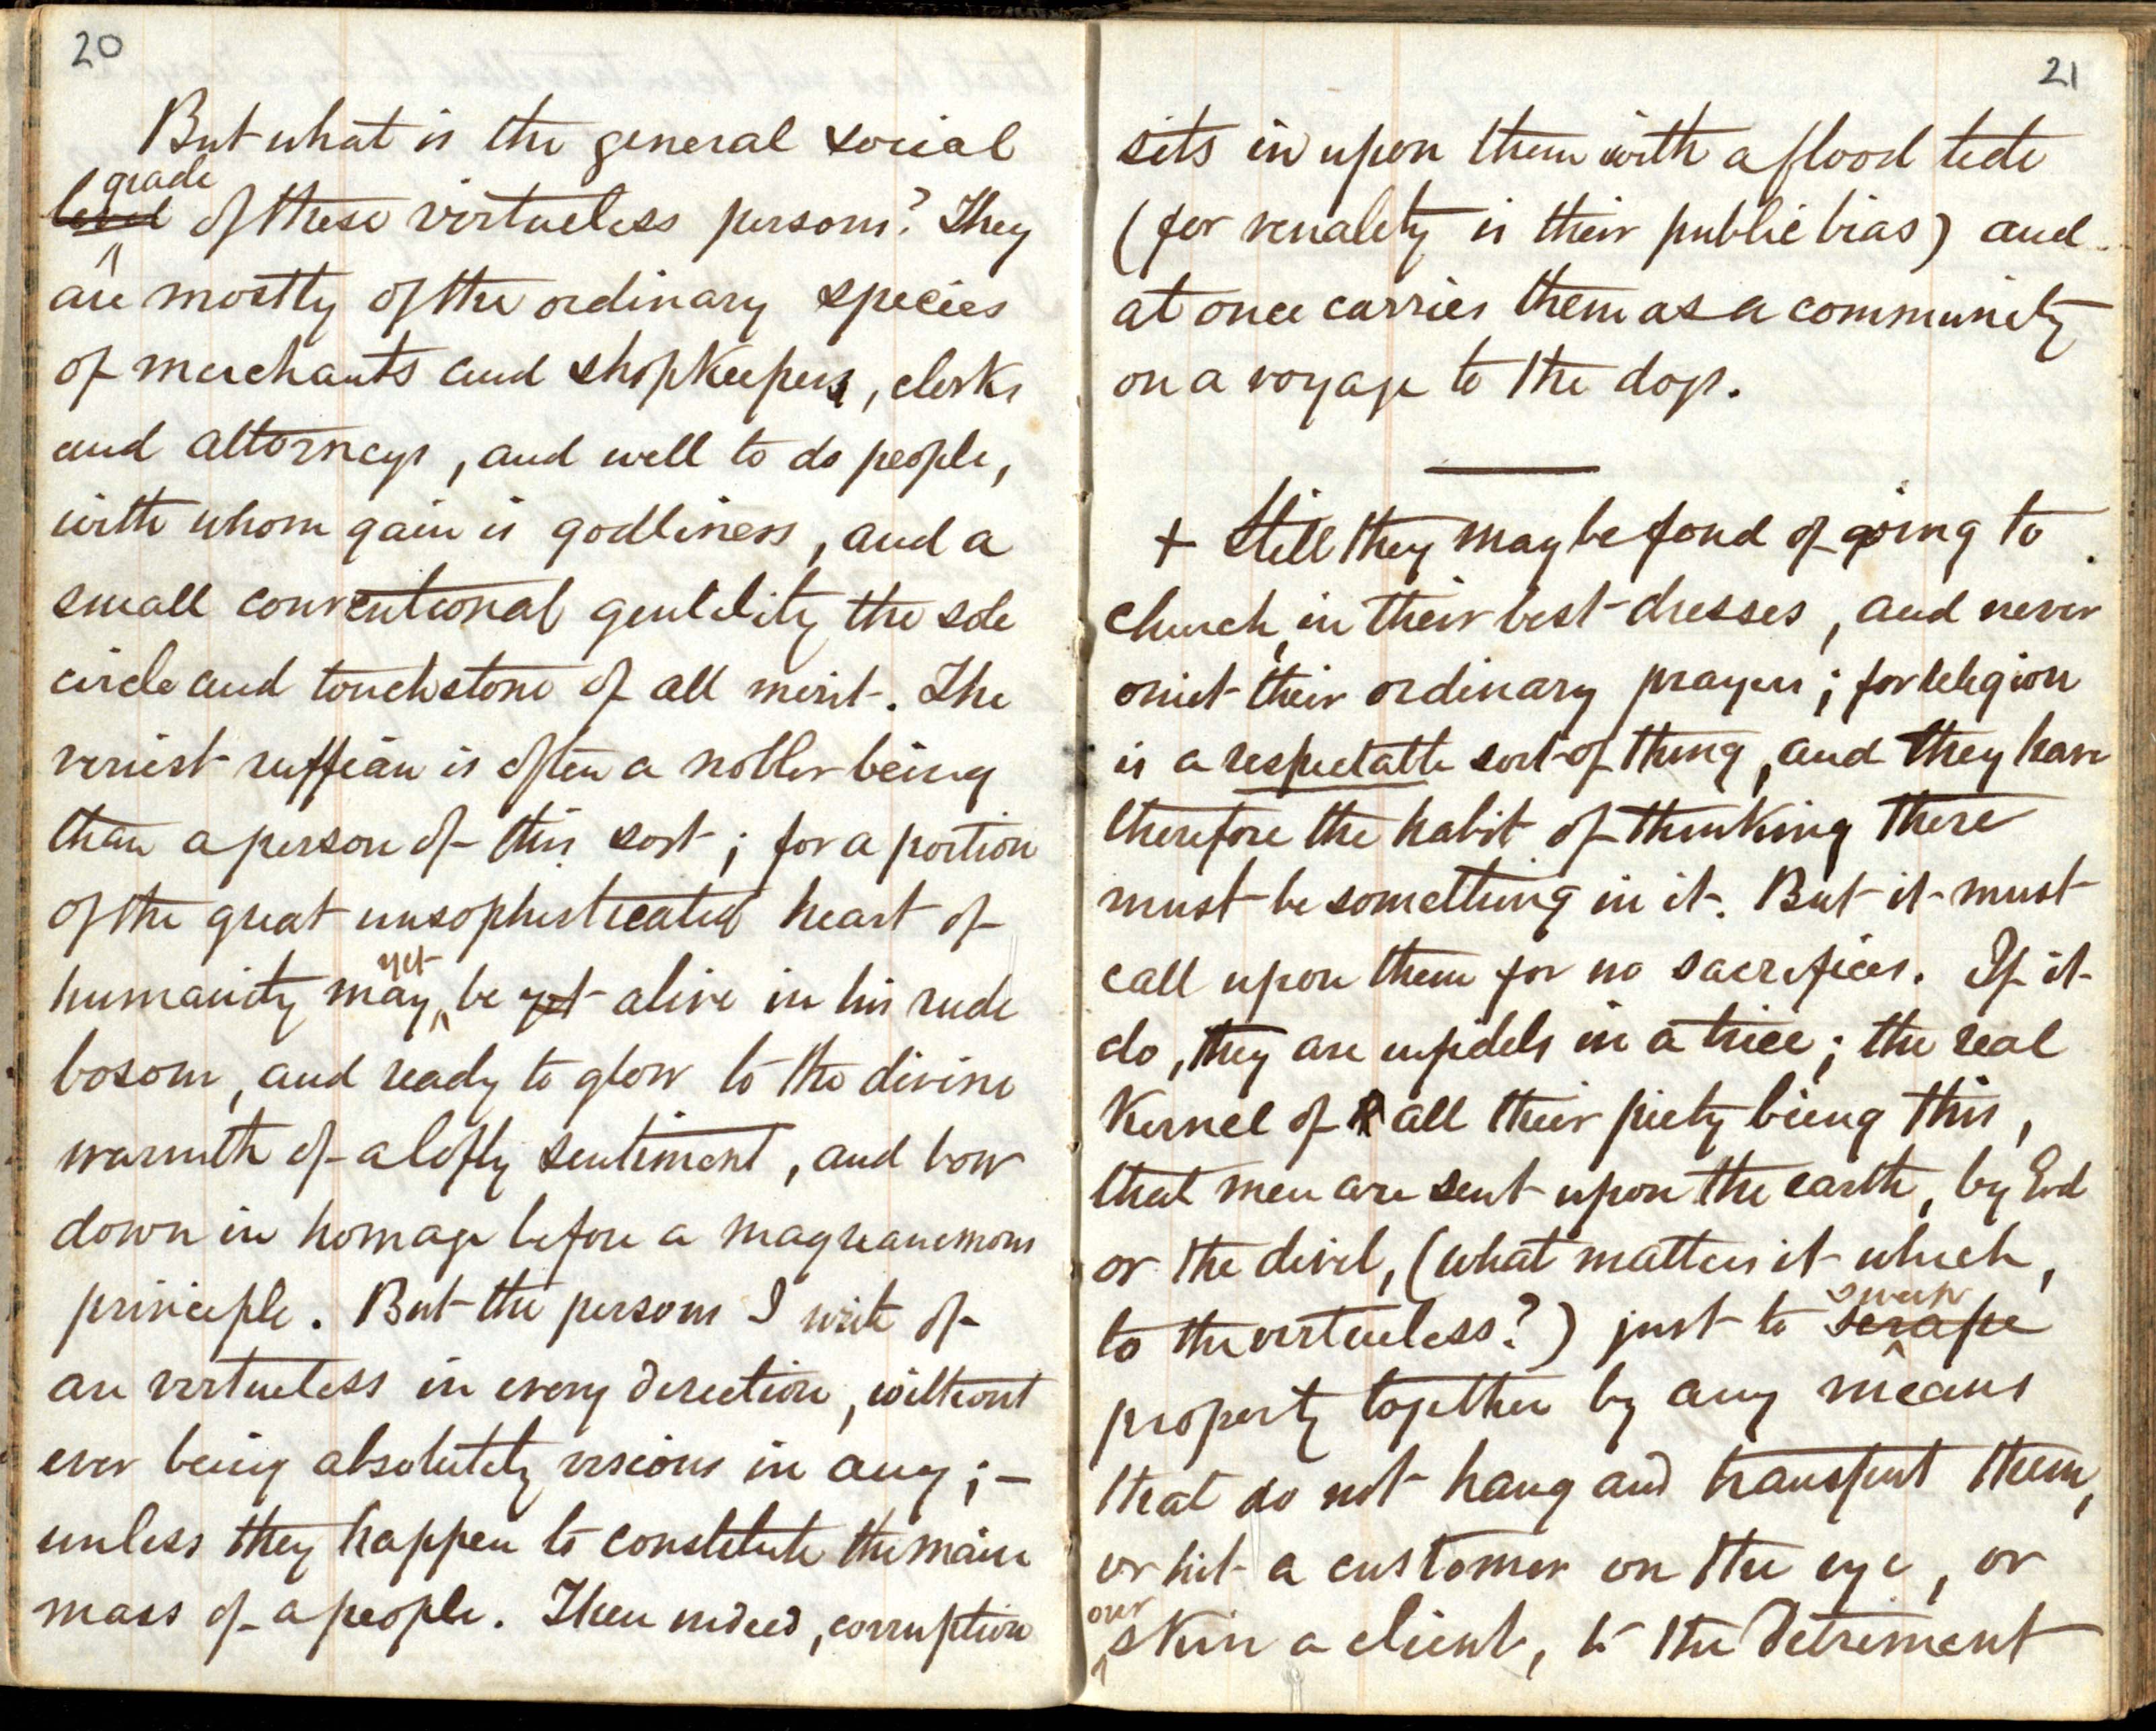 20
But what is the general social
grade
level of these virtueless persons? They
are mostly of the ordinary species
of merchants and shopkeepers, clerks
and attorneys, and well to do people,
with whom gain is godliness, and a
small conventional gentility the sole
circle and touchstone of all merit. The
veriest ruffian is often a nobler being
than a person of this sort; for a portion
of the great unsophisticated heart of
yet
humanity may be yet alive in his rude
bosom, and ready to glow to the divine
warmth of a lofty sentiment, and bow
down in homage before a magnanimous
principle. But the persons I write of
are virtueless in every direction, without
ever being absolutely vicious in any; –
unless they happen to constitute the main
mass of a people. Then indeed, corruption
21
sets in upon them with a flood tide
(for venality is their public bias) and
at once carries them as a community
on a voyage to the dogs.
+ Still they may be fond of going to
church, in their best dresses, and never
omit their ordinary prayers; for religion
is a respectable sort of thing, and they have
therefore the habit of thinking there
must be something in it. But it must
call upon them for no sacrifices. If it
do, they are infidels in a trice; the real
kernel of all their piety being this,
that men are sent upon the earth, by God
or the devil, (what matters it which,
sweep
to the virtueless?) just to scrape
property together by any means
that do not hang and transport them,
or hit a customer on the eye, or
over
skin a client, to the detriment